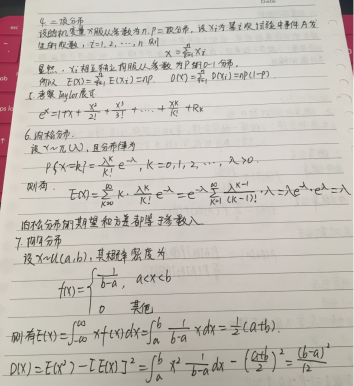 4. 二项分布
设随机变量X服从参数为n.p二项分布，设Xi为第i次试验中事件A发
生的次数，i=1, 2, …, n 则
X = Σ(i=1→n) Xi
显然，Xi相互独立均服从参数为P的0-1分布.
所以 E(X) = Σ(i=1→n) E(Xi) = np. D(X) = Σ(i=1→n) D(Xi) = np(1-p).
5. Taylor展式
e^x = 1 + x + x²/2! + x³/3! + … + x^k/k! + Rk
6. 泊松分布.
设 X~π(λ), 且分布律为
P{X=k} = λ^k/k! e^-λ, k=0, 1, 2, …, λ>0.
则有
E(X) = Σ(k=0→∞) k · λ^k/k! e^-λ = e^-λ Σ(k=1→∞) λ^(k-1)/(k-1)! · λ = λe^-λ · e^λ = λ
泊松分布的期望和方差都等于参数λ
7. 均匀分布
设 X~U(a,b), 其概率密度为
f(x) = { 1/(b-a), a<x<b
0 其他
则有 E(X) = ∫(-∞→∞) x f(x) dx = ∫(a→b) 1/(b-a) x dx = 1/2 (a+b).
D(X) = E(X²) - [E(X)]² = ∫(a→b) x² 1/(b-a) dx - ((a+b)/2)² = (b-a)²/12